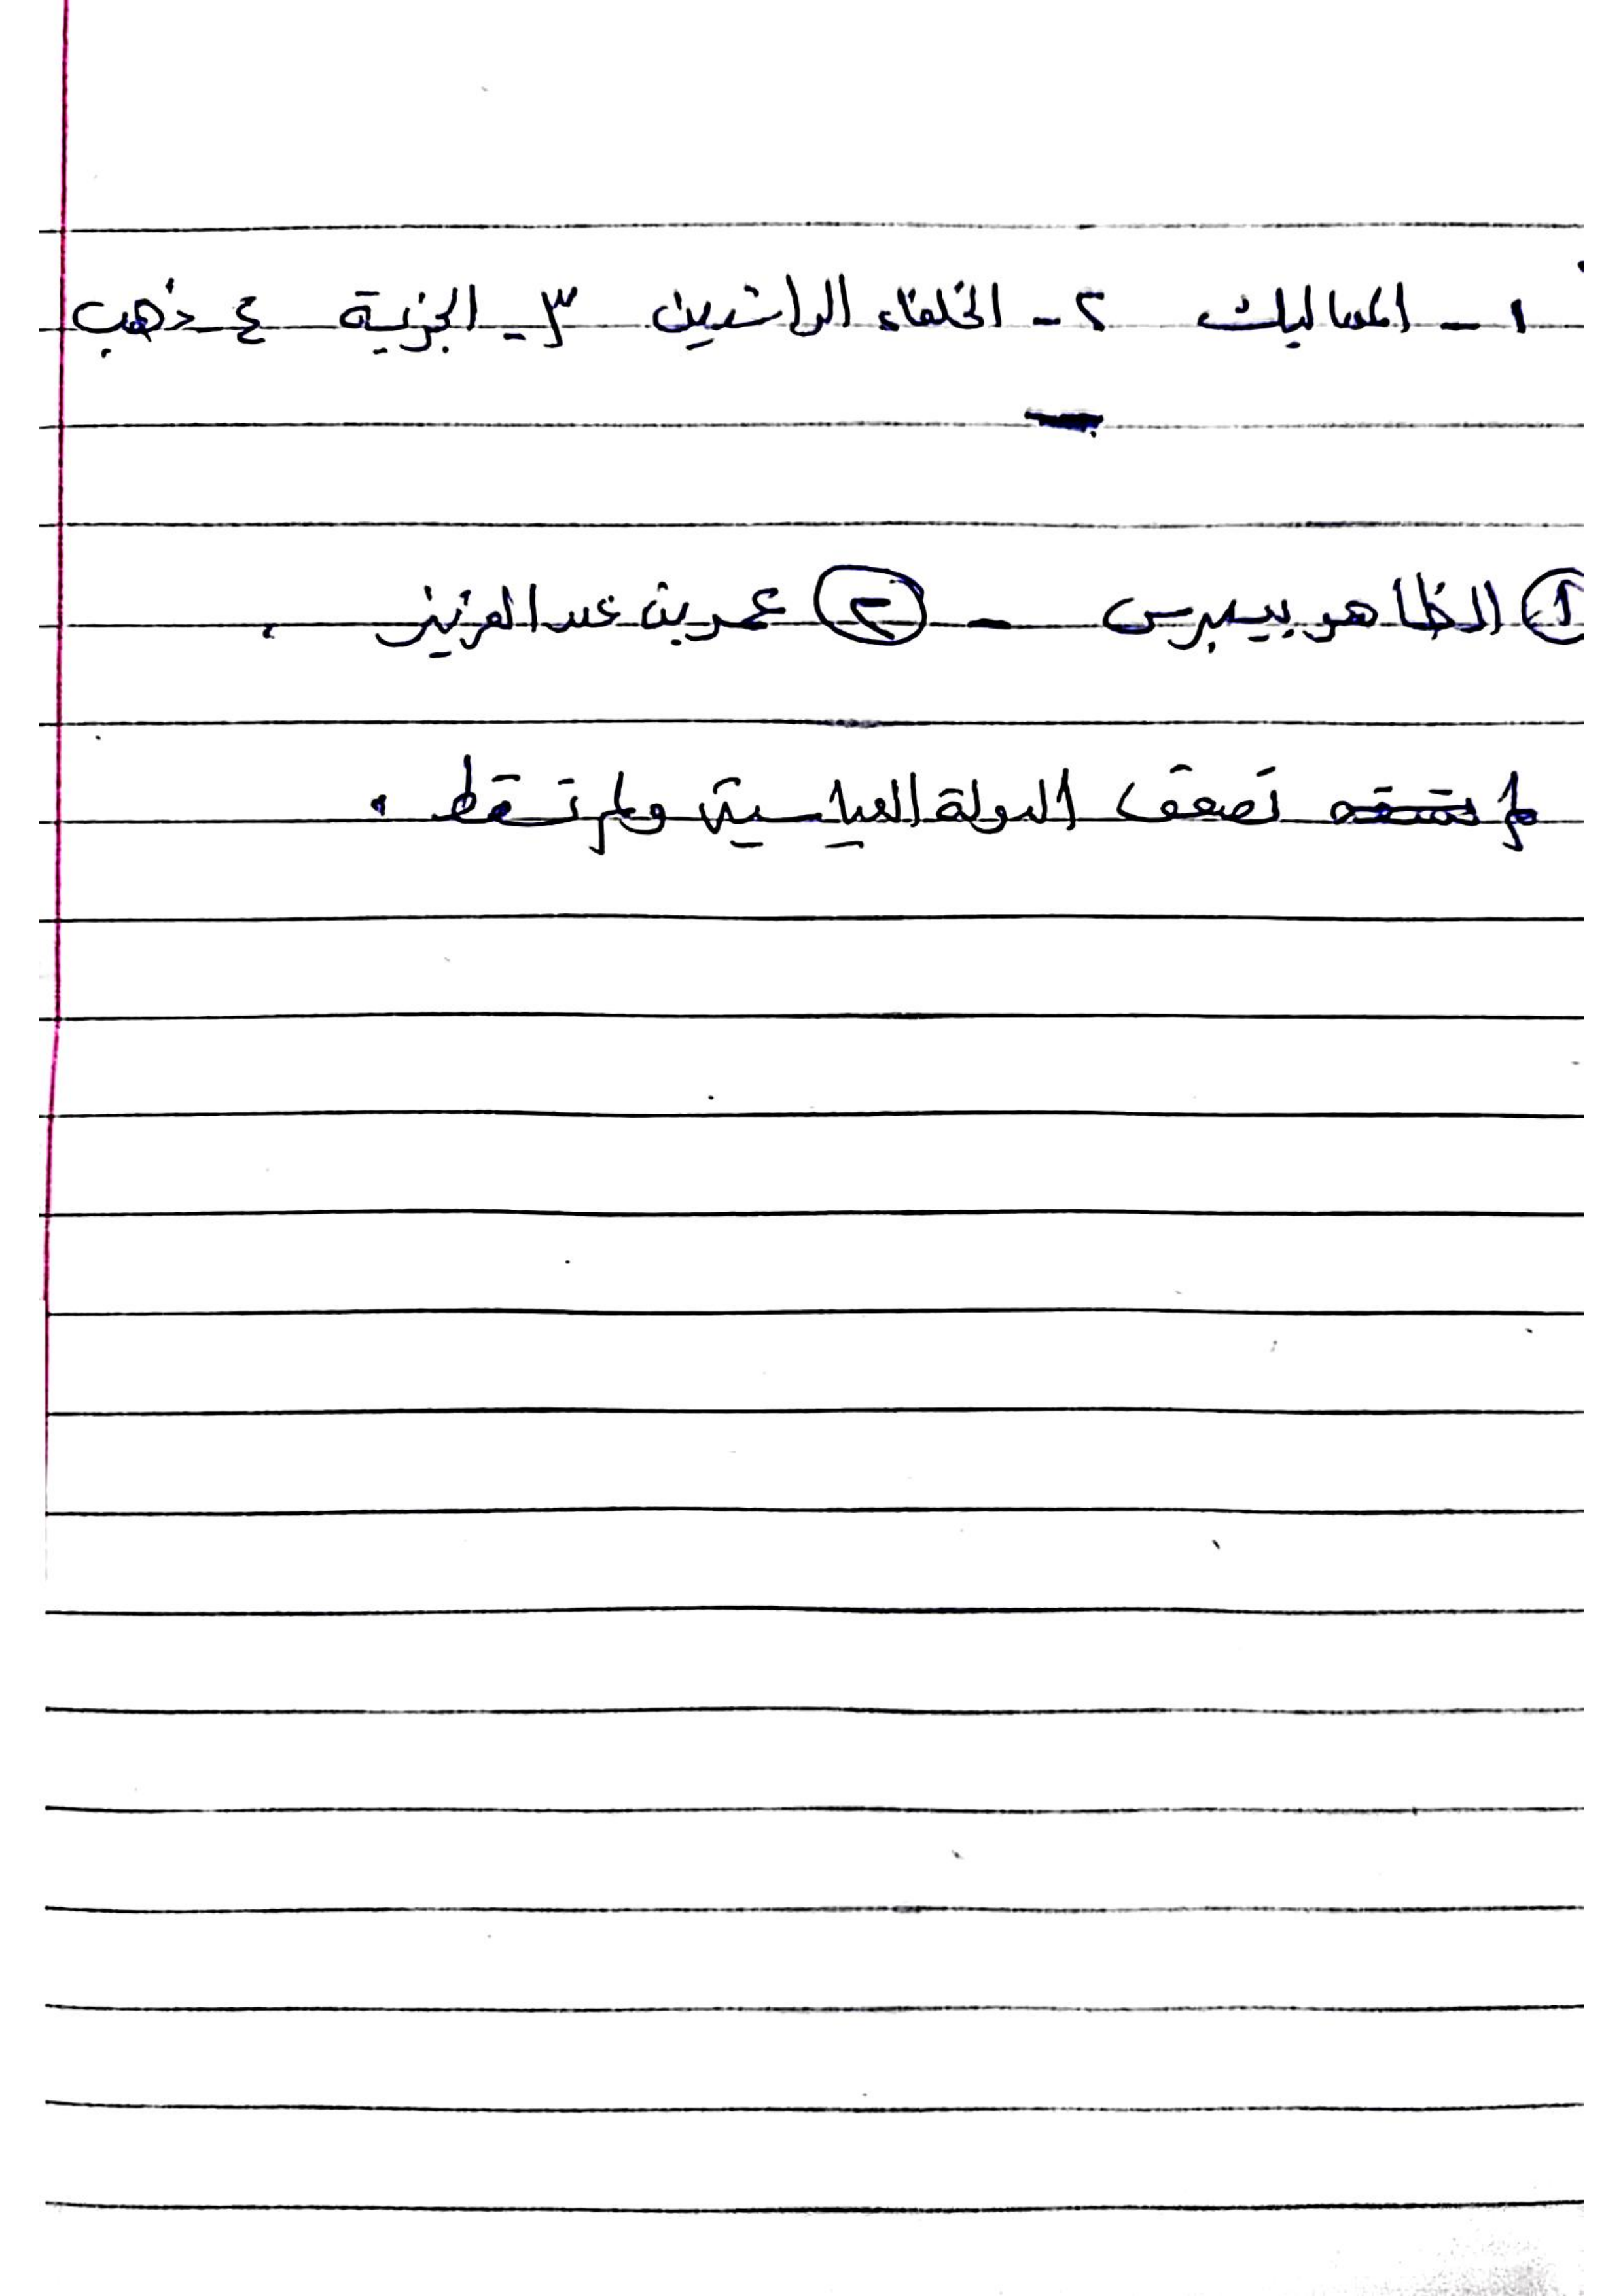 ١ - المماليك ٢ - الخلفاء الراشدين ٣ - الجزية ٤ ذهب
١ الظاهر بيبرس - ٢ عمر بن عبد العزيز .
لم تضعف الدولة العباسية ولم تسقط .